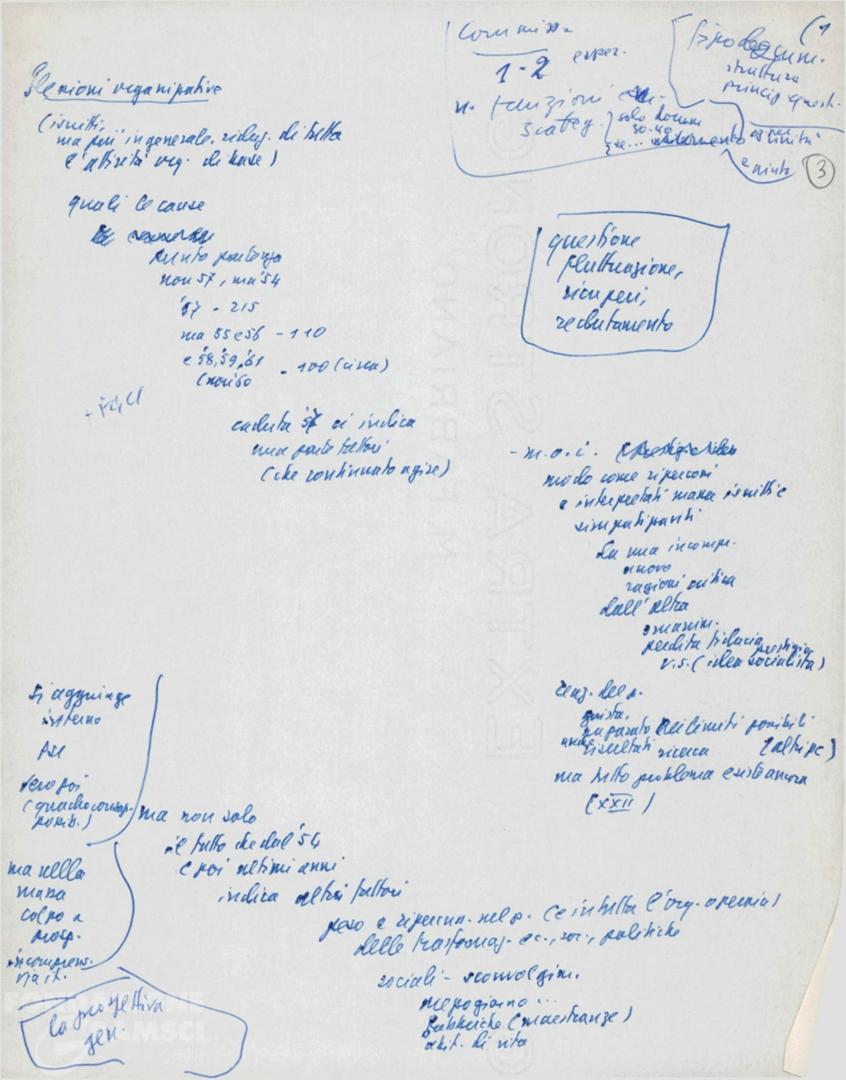 (1
Commiss.
1-2 esper.
n. funzioni
solo donne
so.no
struttura
princip. quest.
e giunta
3
Flessioni organizzative
(iscritti,
ma più in generale, riduz. di tutta
l'attività org. di base)
quali le cause
punto partenza
non 57, ma 54
'57 - 215
ma 55 e 56 - 110
e '58, 59, 61
(non 60 - 100 (circa)
+ FGCI
caduta '57 ci indica
una parte fattori
(che continuato agire)
questione
fluttuazione,
ricuperi,
reclutamento
- m.o.i.
modo come ripercossi
e interpretati massa iscritti e
simpatizzanti
da una incompr.
nuovo
ragioni critica
dall'altra
smarrim.
perdita fiducia, prestigio
U.S. (idea socialista)
cong. del p.
giusta,
risultati ricerca (altri pc)
ma tutto problema esiste ancora
(XXII)
si aggiunge
interno
PSI
(quadro corresp.
ma nella
massa
colpo a
prosp.
incomprens.
via it.
la prospettiva
gen.
ma non solo
il fatto che dal '54
e poi ultimi anni
indica altri fattori
peso e ripercuss. nel p. (e in tutta l'org. operaia)
delle trasformaz. ec., soc., politiche
sociali - sconvolgim.
mezzogiorno...
fabbriche (maestranze)
abit. di vita
FONDAZIONE
GRAMSCI
EXTRA STRONG
M. FABRIANO